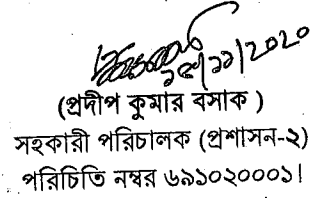 ১৫/১১/২০২০
(প্রদীপ কুমার বসাক )
সহকারী পরিচালক (প্রশাসন-২)
পরিচিতি নম্বর ৬৯১০২০০০১।